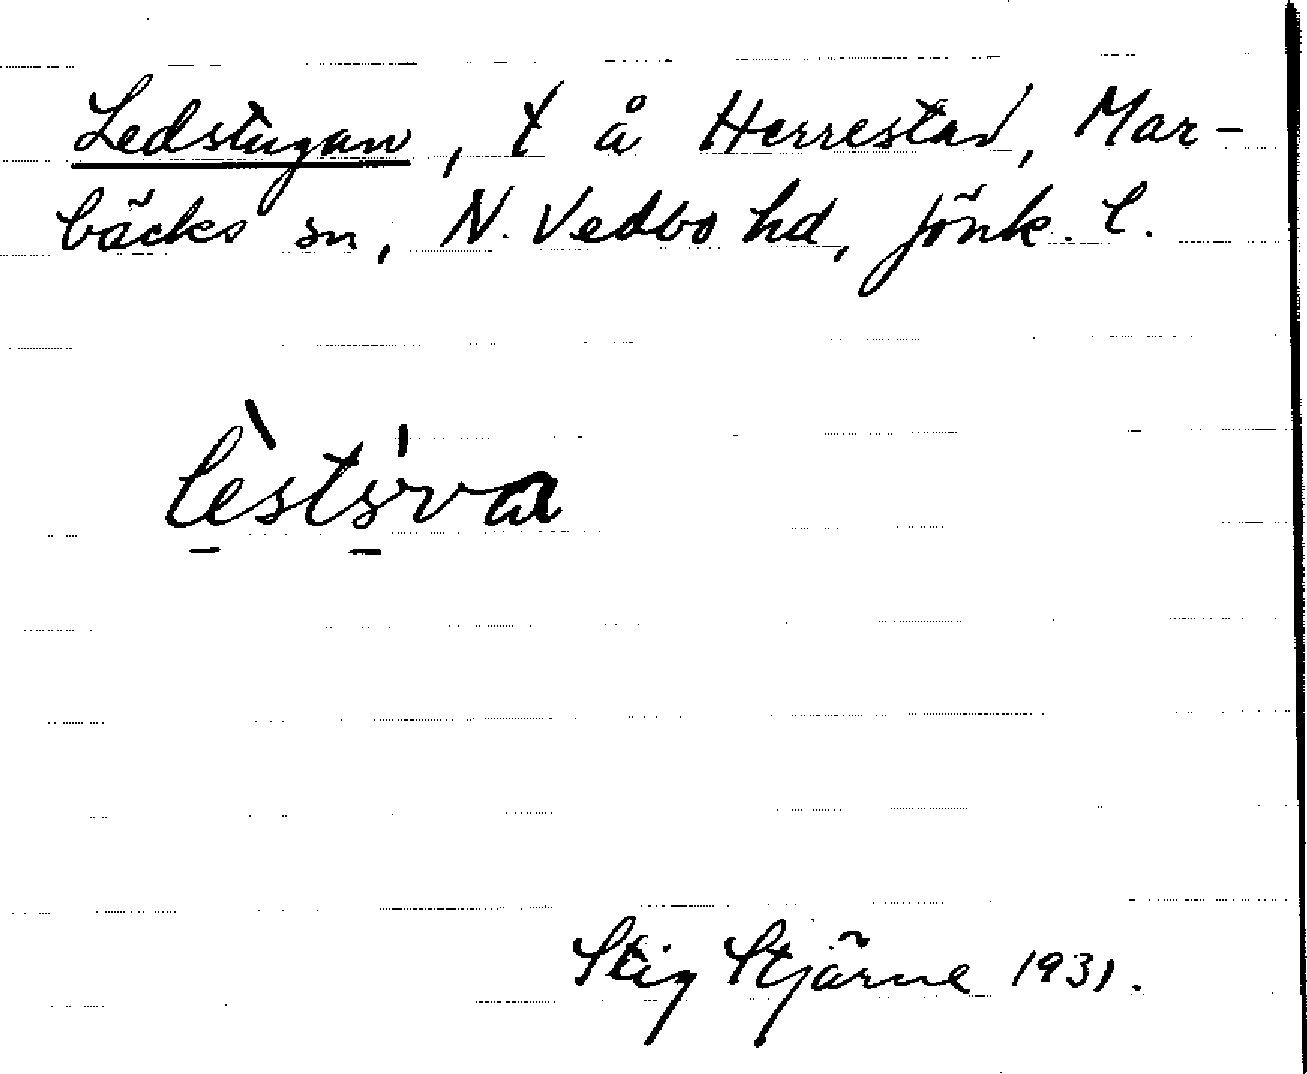 Ledstugan, t å Herrestad, Mar-
bäcks sn, N. Vedbo hd, Jönk. l.
Stig Stjärne 1931.